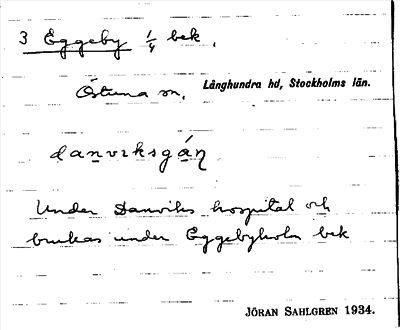 3 Eggeby 1/4 bek.
Östuna sn. Långhundra hd, Stockholms län.
danviksgán
Under Danviks hospital och
brukas under Eggebyholm bek
JÖRAN SAHLGREN 1934.